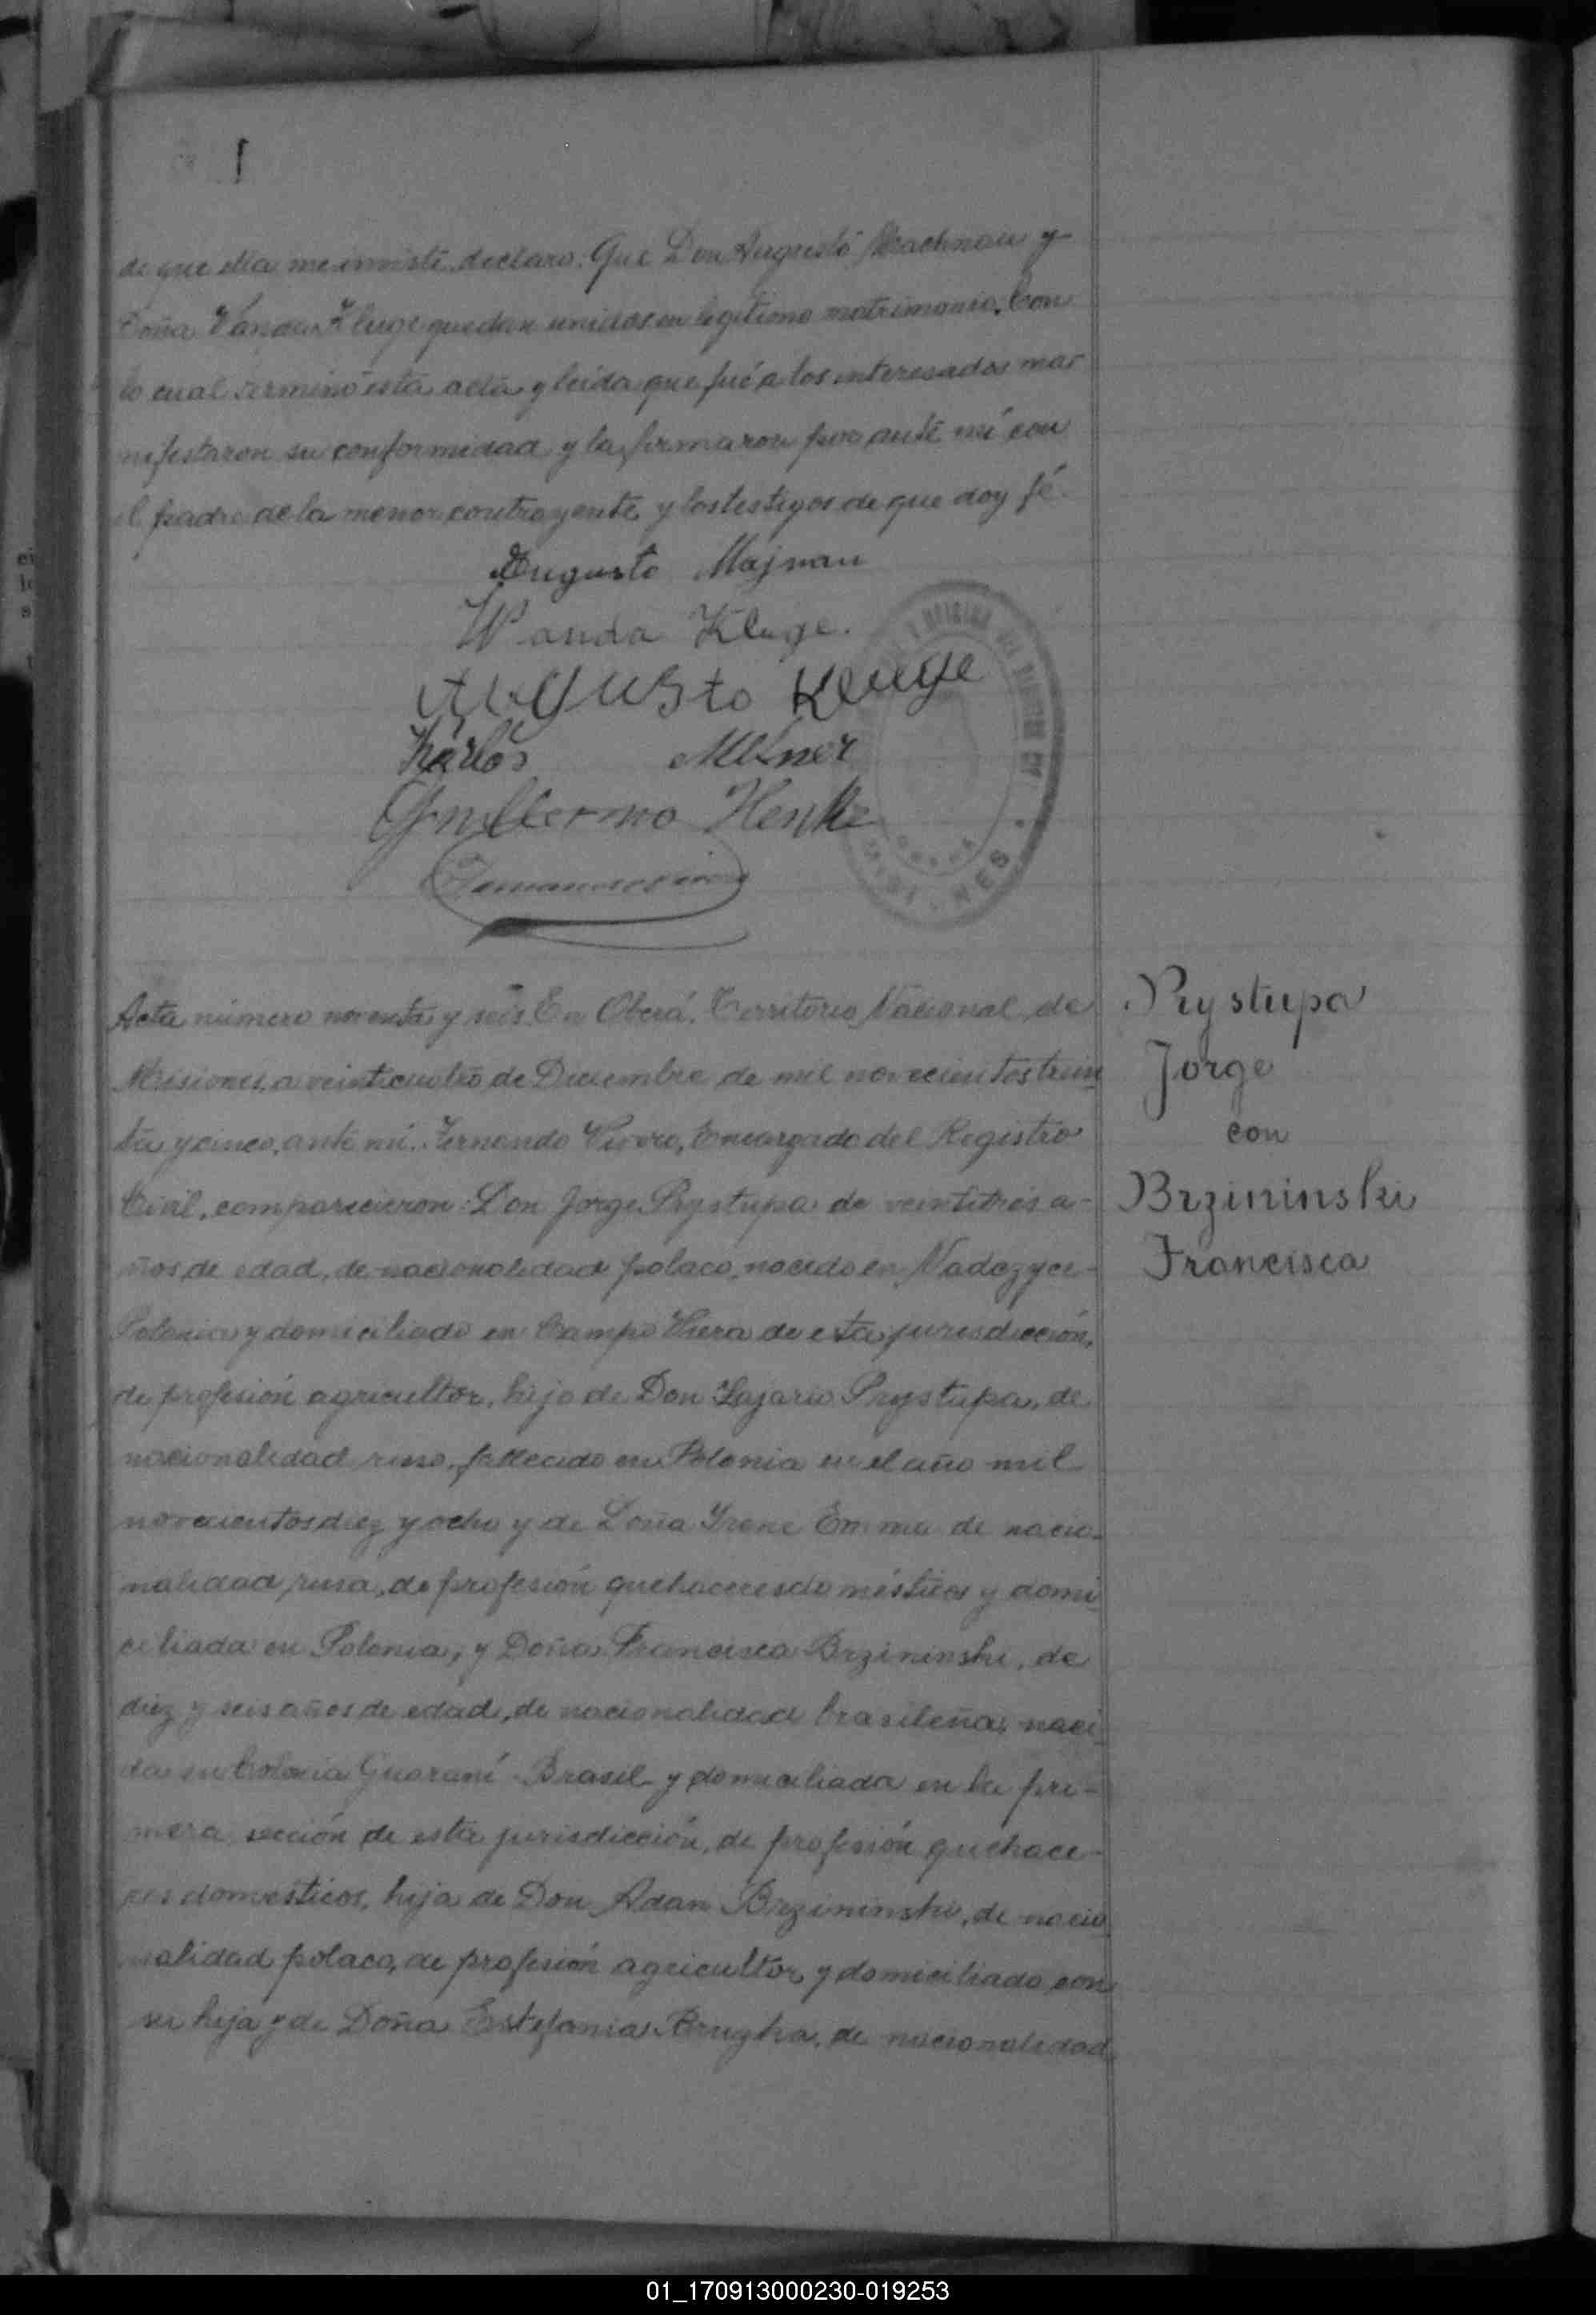 de que ella me inviste, declaro: Que Don Augusto Machnau y
Doña Vanda Kluge quedan unidos en legitimo matrimonio. Con
lo cual terminó esta acta y leida que fué a los interesados ma-
nifestaron su conformidad y la firmaron por ante mí con
el padre de la menor contrayente y los testigos de que doy fé.
Augusto Majnau
Wanda Kluge.
Augusto Kluge
Karlos
Guillermo Henke
Acta número noventa y seis. En Oberá, Territorio Nacional de
Misiones, a veinticuatro de Diciembre de mil novecientos trein
ta y cinco, ante mi. Fernando Vivero, Encargado del Registro
Civil, comparecieron: Don Jorge Prystupa de veintitrés a-
ños de edad, de nacionalidad polaco, nacido en Nadezyce-
Polonia y domiciliado en Campo Viera de esta jurisdicción,
de profesión agricultor, hijo de Don Lazario Prystupa, de
nacionalidad ruso, fallecido en Polonia en el año mil
novecientos diez y ocho y de Doña Irene Emma de nacio-
nalidad rusa, de profesión quehaceres domésticos y domi
ciliada en Polonia; y Doña Francisca Brzininski, de
diez y seis años de edad, de nacionalidad brasileña, naci
da en Colonia Guaraní - Brasil y domiciliada en la pri-
mera sección de esta jurisdicción, de profesión quehace-
res domésticos, hija de Don Adan Brzininski, de nacio
nalidad polaco, de profesión agricultor y domiciliado con
su hija y de Doña Estefania, de nacionalidad
Prystupa
Jorge
con
Brzininski
Francisca
01_170913000230-019253